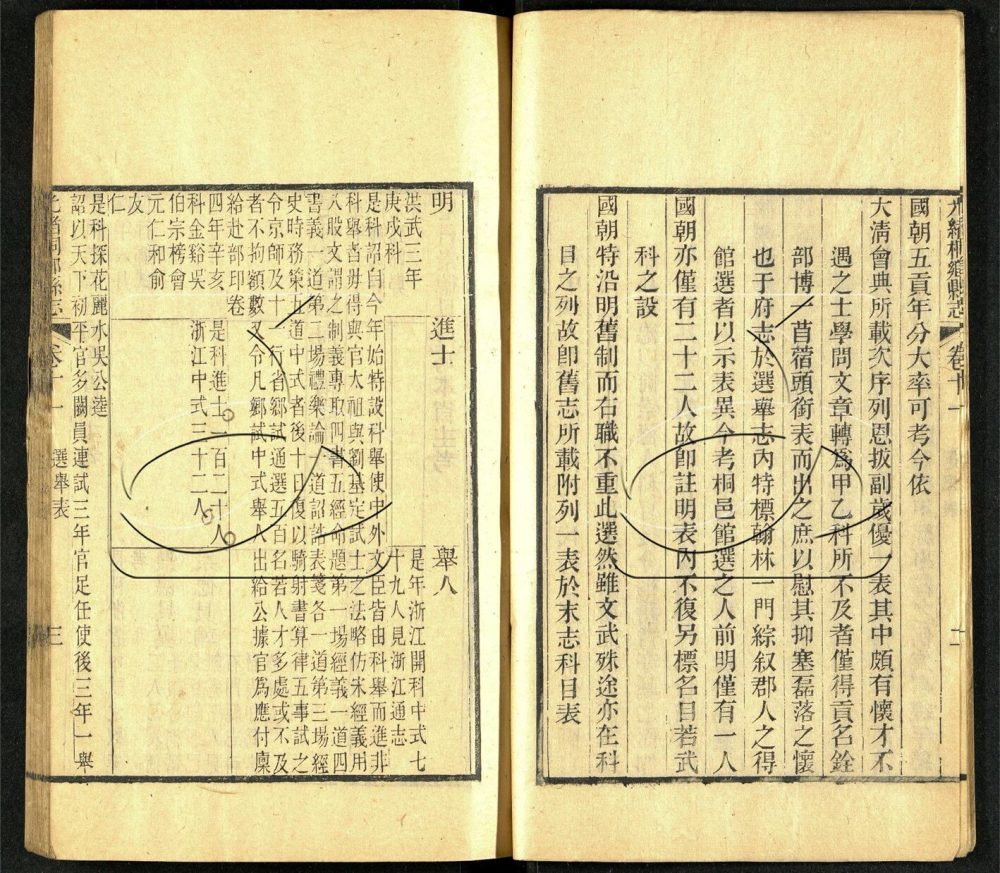 光緒桐鄉縣志 卷十一
國朝五貢年分大率可考今依
大淸會典所載次序列恩拔副歲優一表其中頗有懷才不
遇之士學問文章轉爲甲乙科所不及者僅得貢名銓
部博一苜蓿頭銜表而出之庶以慰其抑塞磊落之懷
也于府志於選舉志內特標翰林一門綜叙郡人之得
館選者以示表異今考桐邑館選之人前明僅有一人
國朝亦僅有二十二人故卽註明表內不復另標名目若武
科之設
國朝特沿明舊制而右職不重此選然雖文武殊途亦在科
目之列故卽舊志所載附列一表於末志科目表
明
進士
舉人
洪武三年
庚戌科
是年浙江開科中式七
十九人見浙江通志
是科詔曰今年始特設科舉使中外文臣皆由科舉而進非
科舉者毋得與官太祖與劉基定試士之法略仿宋經義用
八股文謂之制義專取四書五經命題第一場經義一道四
書義一道第二場禮樂論一道詔誥表箋各一道第三場經
史時務策五道中式者後十日復以騎射書算律五事試之
令京師及十一行省鄉試通選五百名若人才多處或不及
者不拘額數又令凡鄉試中式舉人出給公據官爲應付廩
給赴部印卷
四年辛亥
科金谿吳
伯宗榜會
元仁和俞
友仁
是科進士一百二十人
浙江中式三十二人
是科探花麗水吳公達
詔以天下初平官多闕員連試三年官足任使後三年一舉
光緒桐鄉縣志 卷十一 選舉表 三